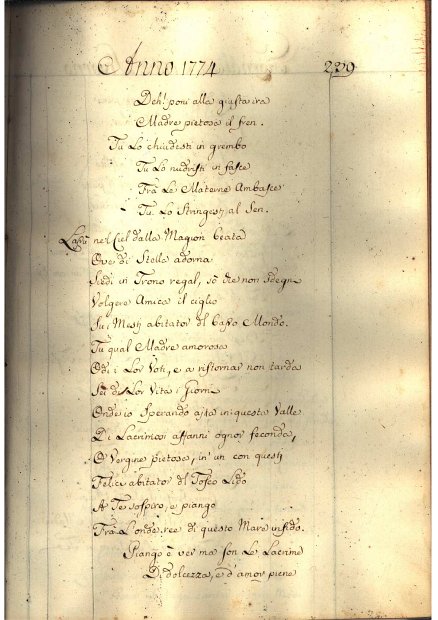 Anno 1774
229
Deh! poni alla giusta ira
Madre pietosa il fren.
Tu Lo chiudesti in grembo
Tu Lo nudristi in fasce
Frà Le Materne Ambasce
Tu Lo Stringesti al Sen.
Lassù nel Ciel dalla Magion beata
Ove di Stelle adorna
Siedi in Trono regal, sò che non sdegni
Volgere Amica il ciglio
Su i Mesti abitator del basso Mondo.
Tu qual Madre amorosa
Odi i Lor Voti, e a ristorar non tarda
Sei di Lor Vita i Giorni
Onde io Sperando aita in questa Valle
Di Lacrimosi affanni ognor feconda,
O Vergine pietosa, in un con questi
Felici abitator del Tosco Lido
A Te sospiro, e piango
Frà L'onde ree di questo Mare infido.
Piango è ver ma son Le Lacrime
Di dolcezza, e d'amor piene